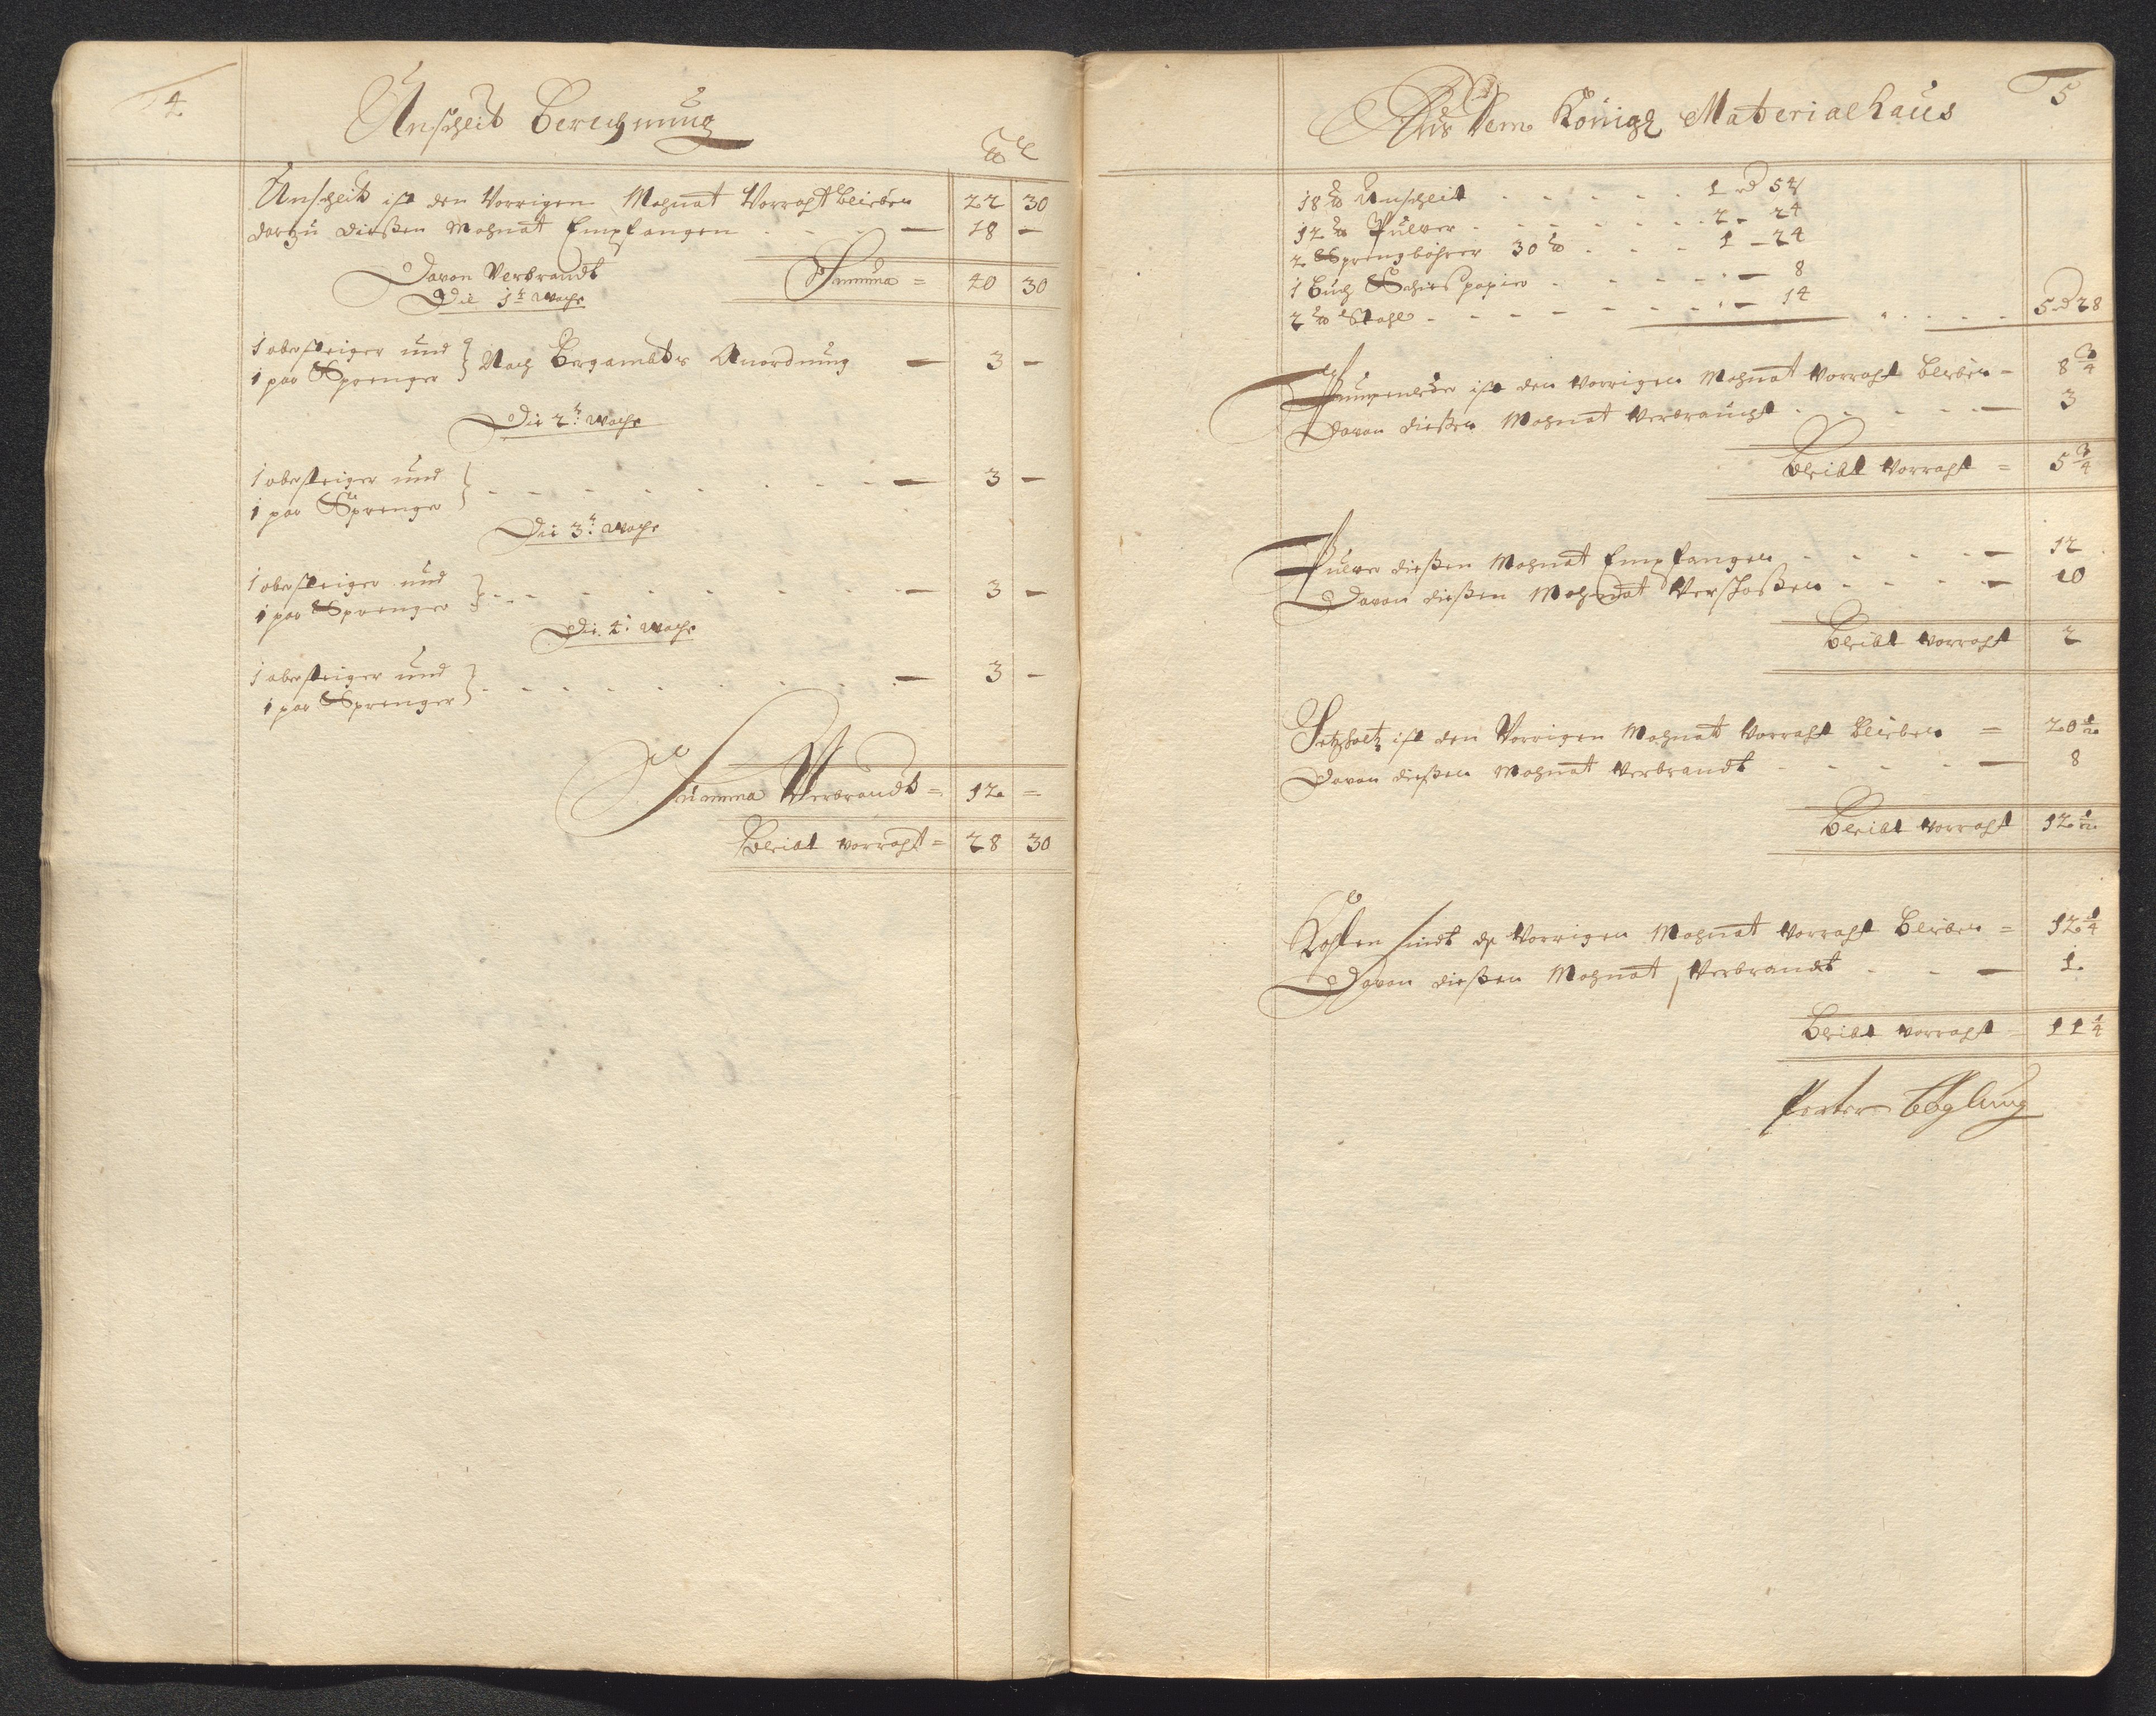 4
Unschlit Berechnung
℔ L
Unschlit ist den Vorrigen Mohnat Vorraht bleiben 22 30
darzu dießen Mohnat Empfangen - - - 18 -
Summa = 40 30
Davon Verbrandt
Die 1t Woche
1 obersteiger und
1 par Sprenger } Nach Bergambts Anordnung - 3 -
Die 2t Woche
1 obersteiger und
1 par Sprenger } - - - - - - - 3 -
Die 3t Woche
1 obersteiger und
1 par Sprenger } - - - - - - - 3 -
Die 4t Woche
1 obersteiger und
1 par Sprenger } - - - - - - - 3 -
Summa Verbrandt = 12 =
Bleibt vorraht = 28 30
5
Aus dem Königl Materialhaus
18 ℔ Unschlit - - - - - 1 rd 54
12 ℔ Pulver - - - - - 2 - 24
2 Sprengbohrer 30 ℔ - - - 1 - 24
1 Buch Schies papier - - - - - 8
2 ℔ Stahl - - - - - - - 14 5 rd 28
Pumpenleder ist den vorrigen Mohnat vorraht bleiben - 8 3/4
Davon dießen Mohnat Verbraucht - - - - 3
Bleibt vorraht = 5 3/4
Pulver dießen Mohnat Empfangen - - - - 12
Davon dießen Mohnat Verschoßen - - - - 10
Bleibt vorraht 2
Setzholtz ist den Vorrigen Mohnat Vorraht bleiben = 20 1/2
Davon dießen Mohnat Verbrandt - - - - 8
Bleibt vorraht 12 1/2
Kohlen sindt de Vorrigen Mohnat Vorraht bleiben = 12 1/4
Davon dießen Mohnat Verbrandt - - - 1
Bleibt vorraht = 11 1/4
Peter